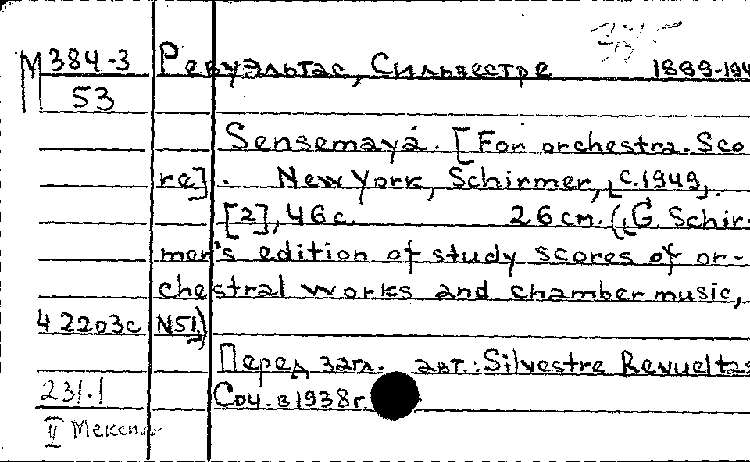 М 384-3 Ревуэльтас, Сильвестре 1899-194
53
Sensemayá. [For orchestra. Sco
re]. New York, Schirmer, [c.1949].
[2], 46 с. 26 cm. (G. Schir-
mer's edition of study scores of or-
chestral works and chamber music,
42203с N51)
Перед загл. авт.: Silvestre Revueltas
231.1 Соч. в 1938г.
II Мексика